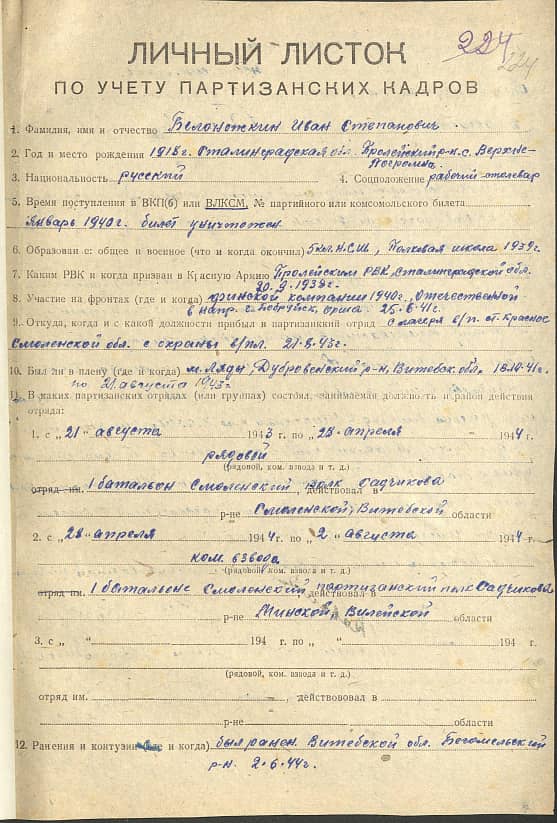 224
224
ЛИЧНЫЙ ЛИСТОК
ПО УЧЕТУ ПАРТИЗАНСКИХ КАДРОВ
1. Фамилия, имя и отчество Белоножкин Иван Степанович.
2. Год и место рождения 1918г. Сталинградская обл. Пролейский р-н. с. Верхне-
Погромна.
3. Национальность русский 4. Соцположение рабочий-столевар
5. Время поступления в ВКП(б) или ВЛКСМ, № партийного или комсомольского билета
январь 1940г. билет уничтожен
6. Образован е: общее и военное (что и когда окончил) 5 кл. Н.С.Ш., Полковая школа 1939г.
7. Каким РВК и когда призван в Красную Армию Пролейским РВК, Сталинградской обл.
20.9.1939г.
8. Участие на фронтах (где и когда) финской компании 1940г., Отечественной
в напр. г. Бобруйск, Орша. 25.6.41г.
9. Откуда, когда и с какой должности прибыл в партизанский отряд с лагеря в/п. ст. Красное
Смоленской обл. с охраны в/пл. 21.8.43г.
10. Был ли в плену (где и когда) м. Ляды, Дубровенский р-н, Витебск. обл. 18.10.41г.
по 21 августа 1943г.
11. В каких партизанских отрядах (или группах) состоял, занимаемая должность и район действия
отряда:
1. с „21“ августа 1943 г. по „28“ апреля 1944 г.
рядовой
(рядовой, ком. взвода и т. д.)
отряд им. 1 батальон Смоленский полк Садчикова, действовал в
р-не Смоленской, Витебской области
2. с „28“ апреля 1944г. по „2“ августа 1944 г.
ком. взвода
(рядовой, ком. взвода и т. д.)
отряд им. 1 батальоне Смоленский партизанский полк Садчикова действовал в
р-не Минской, Вилейской области
3. с „ “ 194 г. по „ “ 194 г.
(рядовой, ком. взвода и т. д.)
отряд им. , действововал в
р-не области
12. Ранения и контузии (где и когда) был ранен. Витебской обл. Бегомельский
р-н. 2.6.44г.